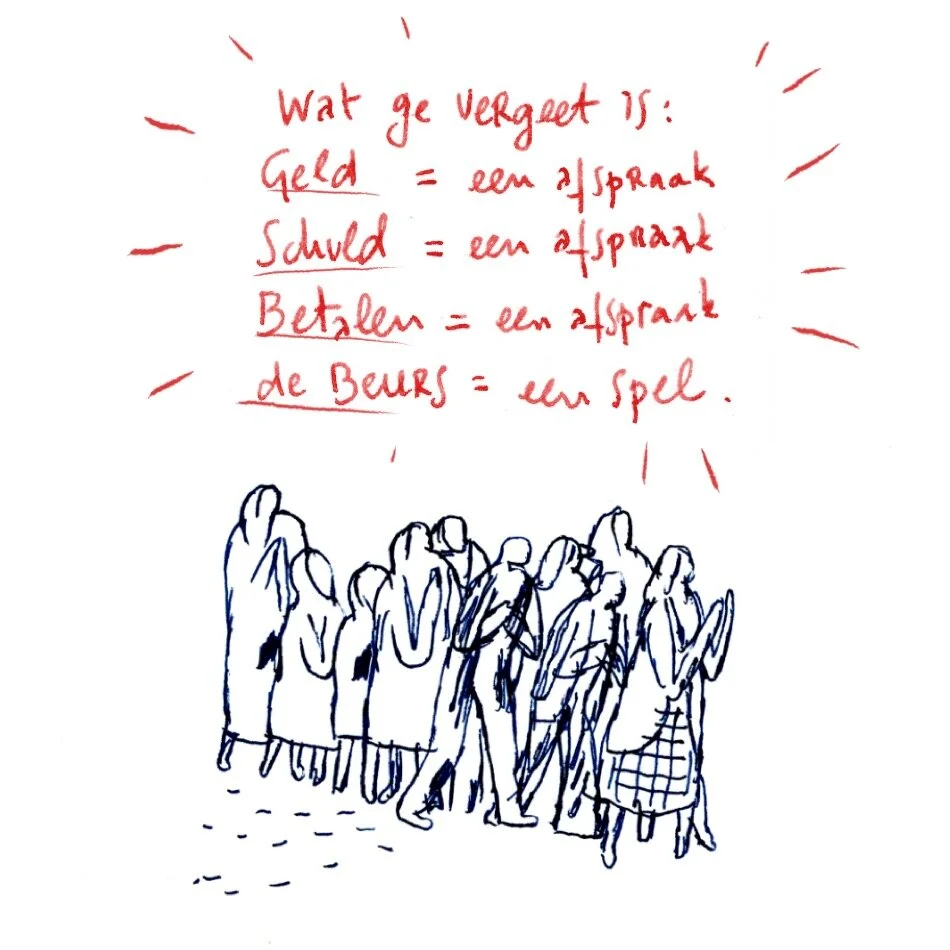 Wat ge vergeet is:
Geld = een afspraak
Schuld = een afspraak
Betalen = een afspraak
de Beurs = een spel.